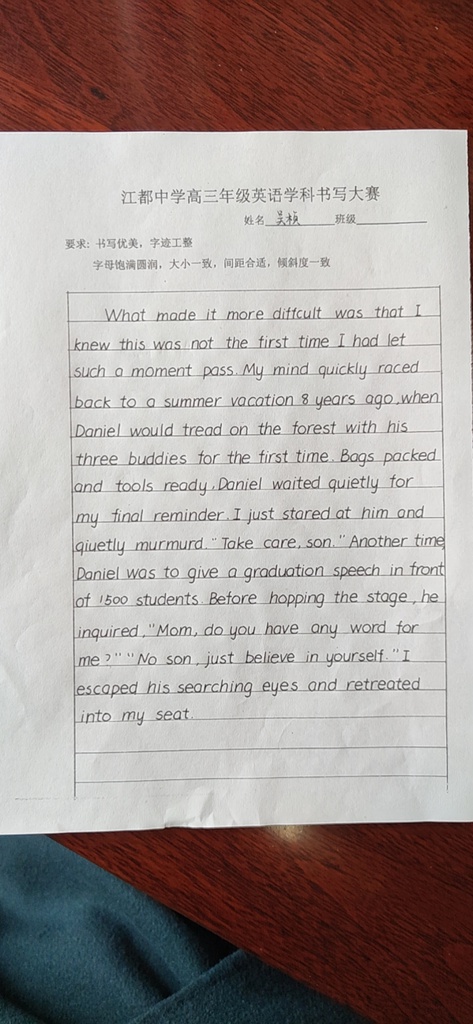 江都中学高三年级英语学科书写大赛
姓名 吴桢 班级
要求: 书写优美，字迹工整
字母饱满圆润，大小一致，间距合适，倾斜度一致
What made it more diffcult was that I
knew this was not the first time I had let
such a moment pass. My mind quickly raced
back to a summer vacation 8 years ago, when
Daniel would tread on the forest with his
three buddies for the first time. Bags packed
and tools ready, Daniel waited quietly for
my final reminder. I just stared at him and
qiuetly murmurd. "Take care, son." Another time,
Daniel was to give a graduation speech in front
of 1500 students. Before hopping the stage, he
inquired, "Mom, do you have any word for
me?" "No son, just believe in yourself." I
escaped his searching eyes and retreated
into my seat.